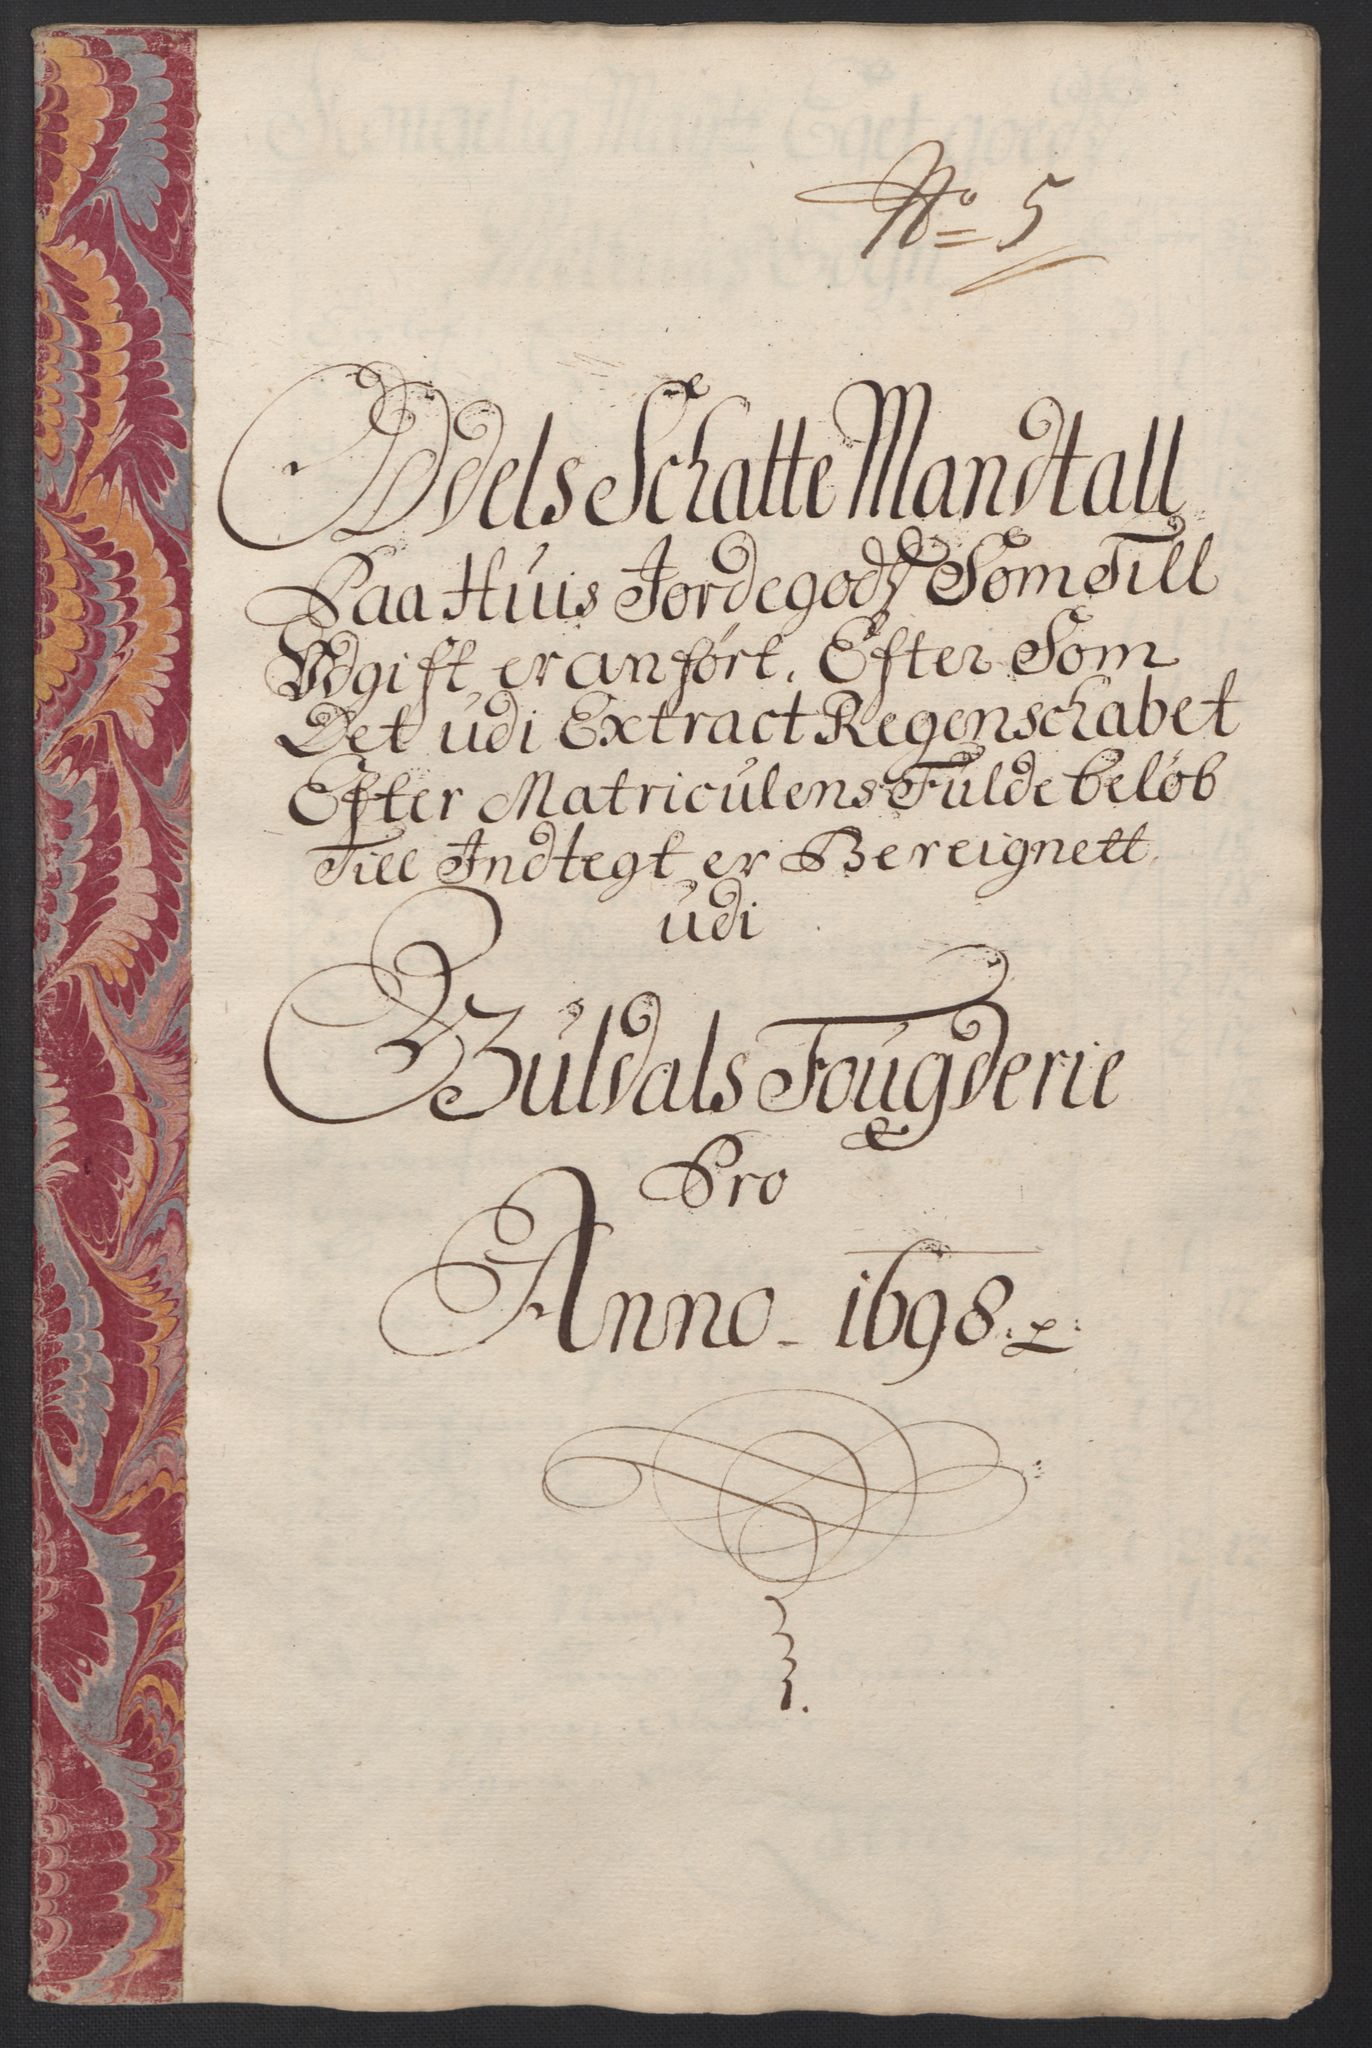 No 5
Odels Schatte Mandtall
Paa Huis Jordegodz Som Till
Udgift er anført. Efter Som
Det udi Extract Regenschabet
Efter Matriculens Fulde beløb
Till Indtegt er Bereignett
udi
Buldals Fougderie
Pro
Anno - 1698